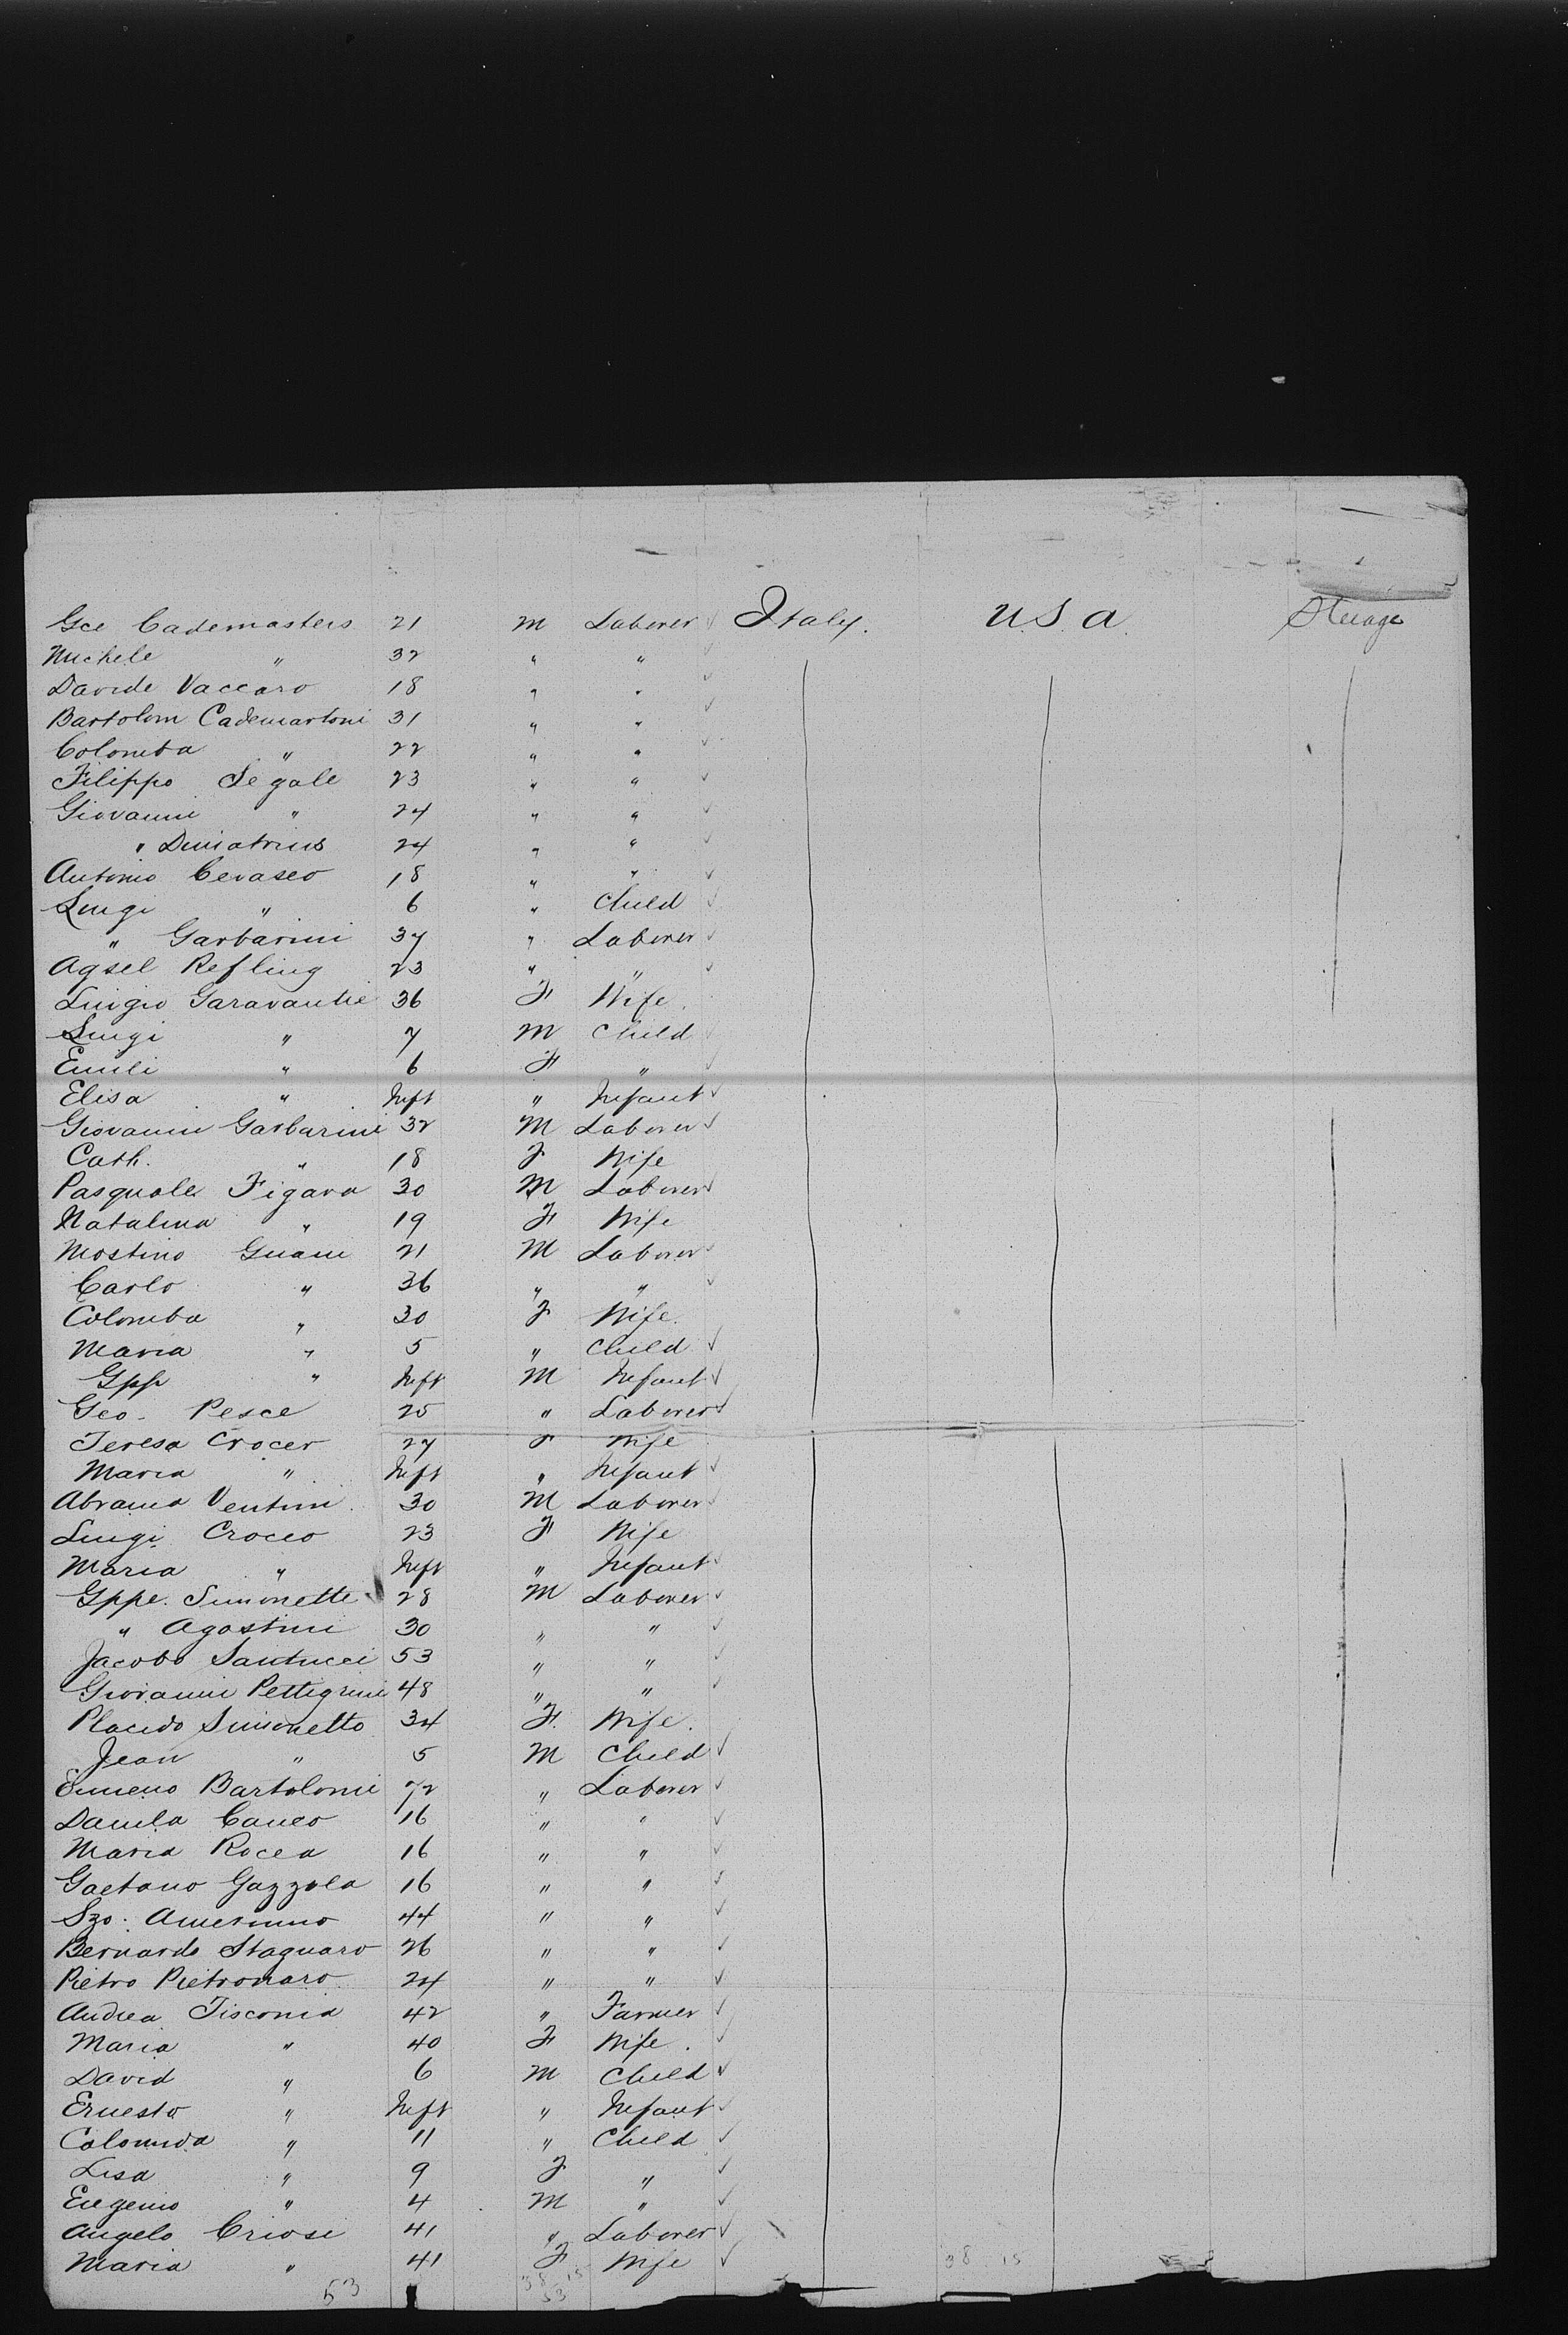 Gce Cademasters 21 M Laborer ✓ Italy. U.S.A. Steerage
Michele " 32 " " ✓
Davide Vaccaro 18 " " ✓
Bartolom Cademartoni 31 " " ✓
Colomba " 22 " " ✓
Filippo Segale 23 " " ✓
Giovanni " 24 " " ✓
" Dimatrius 24 " " ✓
Antonio Cevasco 18 " " ✓
Luigi " 6 " Child ✓
" Garbarini 37 " Laborer ✓
Agsel Refling 23 " " ✓
Luigio Garavantie 36 F Wife.
Luigi " 7 M Child ✓
Emili " 6 F " ✓
Elisa " Inft " Infant ✓
Giovanni Garbarini 32 M Laborer ✓
Cath. " 18 F Wife
Pasquale Figara 30 M Laborer ✓
Natalina " 19 F Wife
Mostino Gnani 21 M Laborer ✓
Carlo " 36 " " ✓
Colomba " 30 F Wife.
Maria " 5 " Child ✓
Gpp " Inft M Infant ✓
Geo. Pesce 25 " Laborer ✓
Teresa Crocer 27 F Wife
Maria " Inft " Infant ✓
Abrama Ventini 30 M Laborer ✓
Luigi Croceo 23 F Wife
Maria " Inft " Infant ✓
Gppe. Simonette 28 M Laborer ✓
" Agostini 30 " " ✓
Jacobo Santucci 53 " " ✓
Giovanni Pettigrini 48 " " ✓
Placido Simonetto 34 F. Wife.
Jean " 5 M Child ✓
Eumeno Bartolomi 72 " Laborer ✓
Danila Caneo 16 " " ✓
Maria Rocca 16 " " ✓
Gaetano Gazzola 16 " " ✓
44 " " ✓
Bernardo Stagnaro 26 " " ✓
Pietro Pietronaro 24 " " ✓
Andrea Tisconia 42 " Farmer ✓
Maria " 40 F Wife. ✓
David " 6 M Child ✓
Ernesto " Inft " Infant ✓
Colomida " 11 " Child ✓
Lisa " 9 F " ✓
Eugenio " 4 M " ✓
Angelo Criose 41 " Laborer ✓
Maria " 41 F Wife ✓
53 38 15 38 15
53